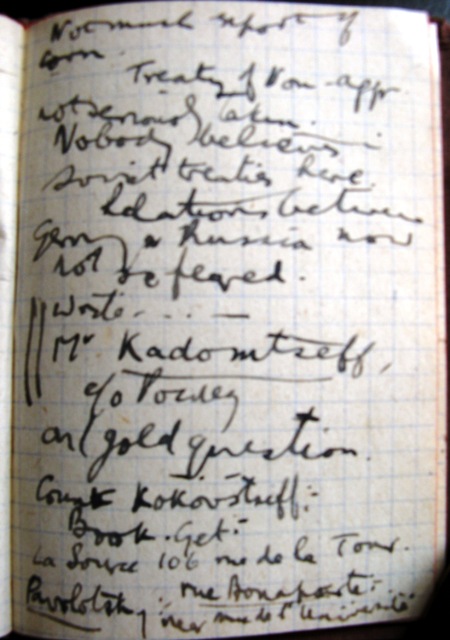 Not much export of
corn.
Treaty of Non-aggr.
not seriously taken.
Nobody believes in
Soviet treaties here.
Relations between
Germy & Russia now
not to be feared.
Write. . . . —
Mr Kadomtseff,
c/o
on gold question.
Count Kokovstseff:-
Book. Get:
La Source 106 rue de la Tour.
rue Bonaparte:
Povolotsky near rue de l'Université